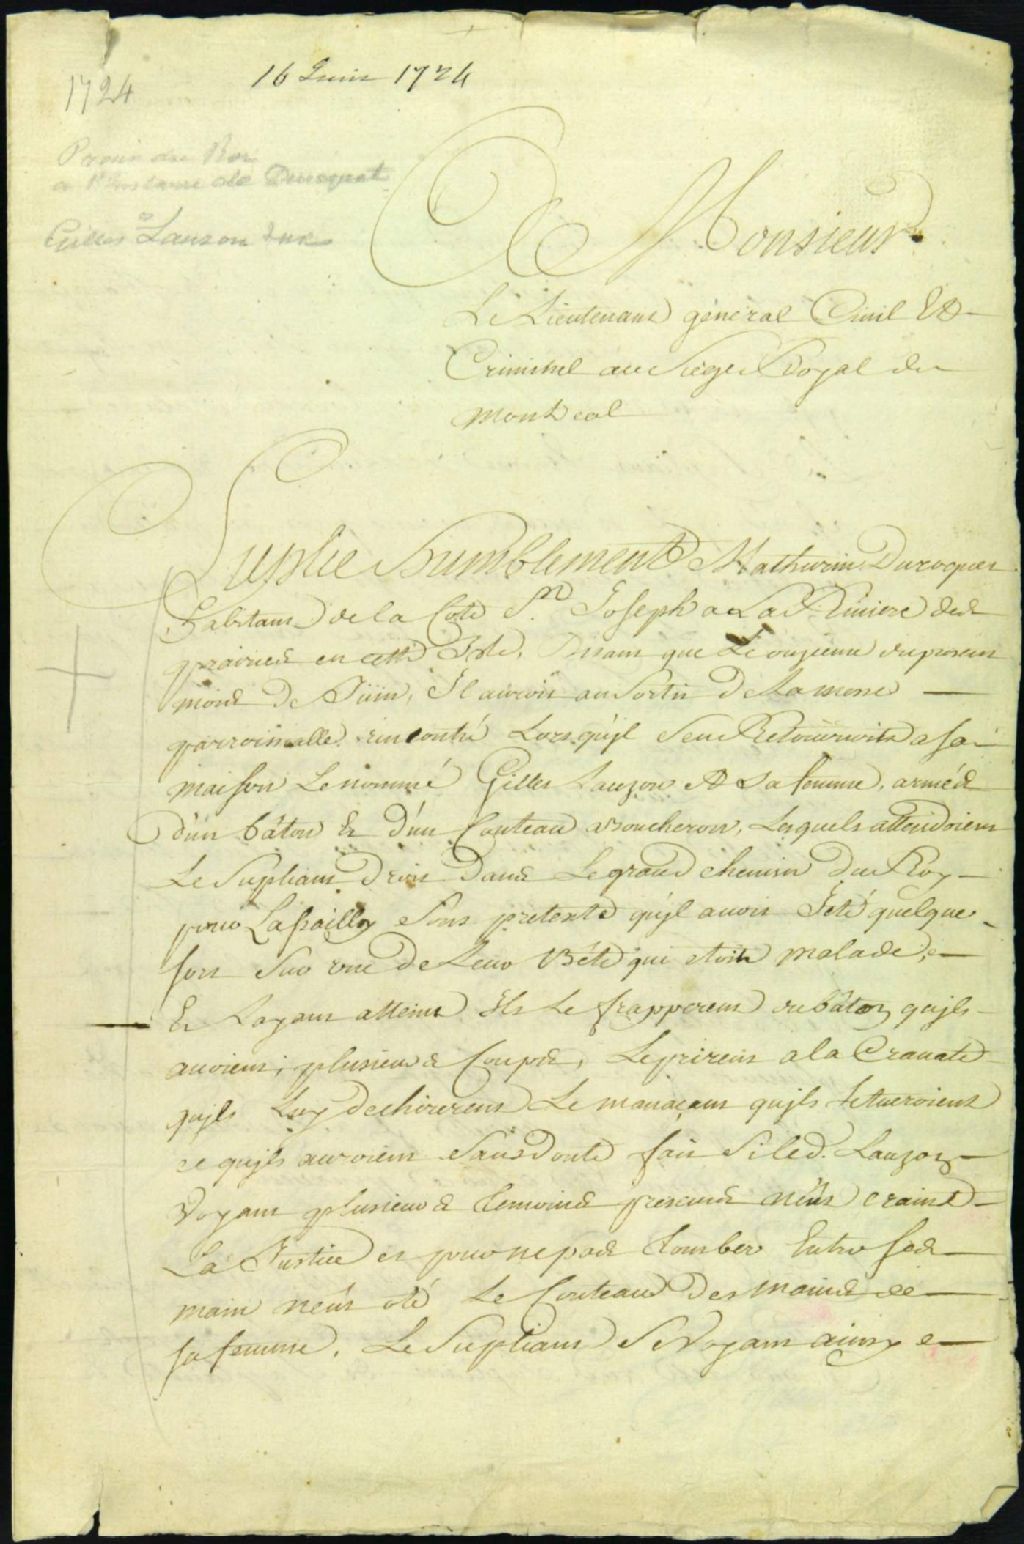 1724
16 Juin 1724
Procès du Roi
a l'instance de Durocquet
Gilles Lauzon
A Monsieur
Le Lieutenant général Civil Et
Criminel au Siege Royal de
Montreal
Suplie humblement Mathurin Durocquet
habitant de la Cote St. Joseph a La Riviere des
prairies en cette Isle, Disant que Le onzieme du present
mois de Juin, Il auroit au Sortir de La messe
parroissialle rencontré Lorsqu'jl s'en Retournoit a sa
maison Le nommé Gilles Lauzon Et Sa femme, armés
d'un bâton Et d'un Couteau aboucheron, Lesquels attendoient
Le Supliant Dans Le grand chemin Du Roy
pour Lassaillir sous pretexte qu'jl avoit Jeté quelque
sort Sur une de Leur Béte qui etoit malade,
Et Layant atteint Ils Le frapperent du bâton qujls
avoient, plusieurs Coups, Le prirent a la Cravate
qujls Luy dechirerent Le menaçant qujls le tueroient
ce qujls auroient Sans Doute fait Si led. Lauzon
Voyant plusieurs temoins presents n'eut craint
La Justice et pour ne pas tomber Entre ses
main n'eut oté Le Couteau des mains de
sa femme. Le Supliant Se Voyant ainsy